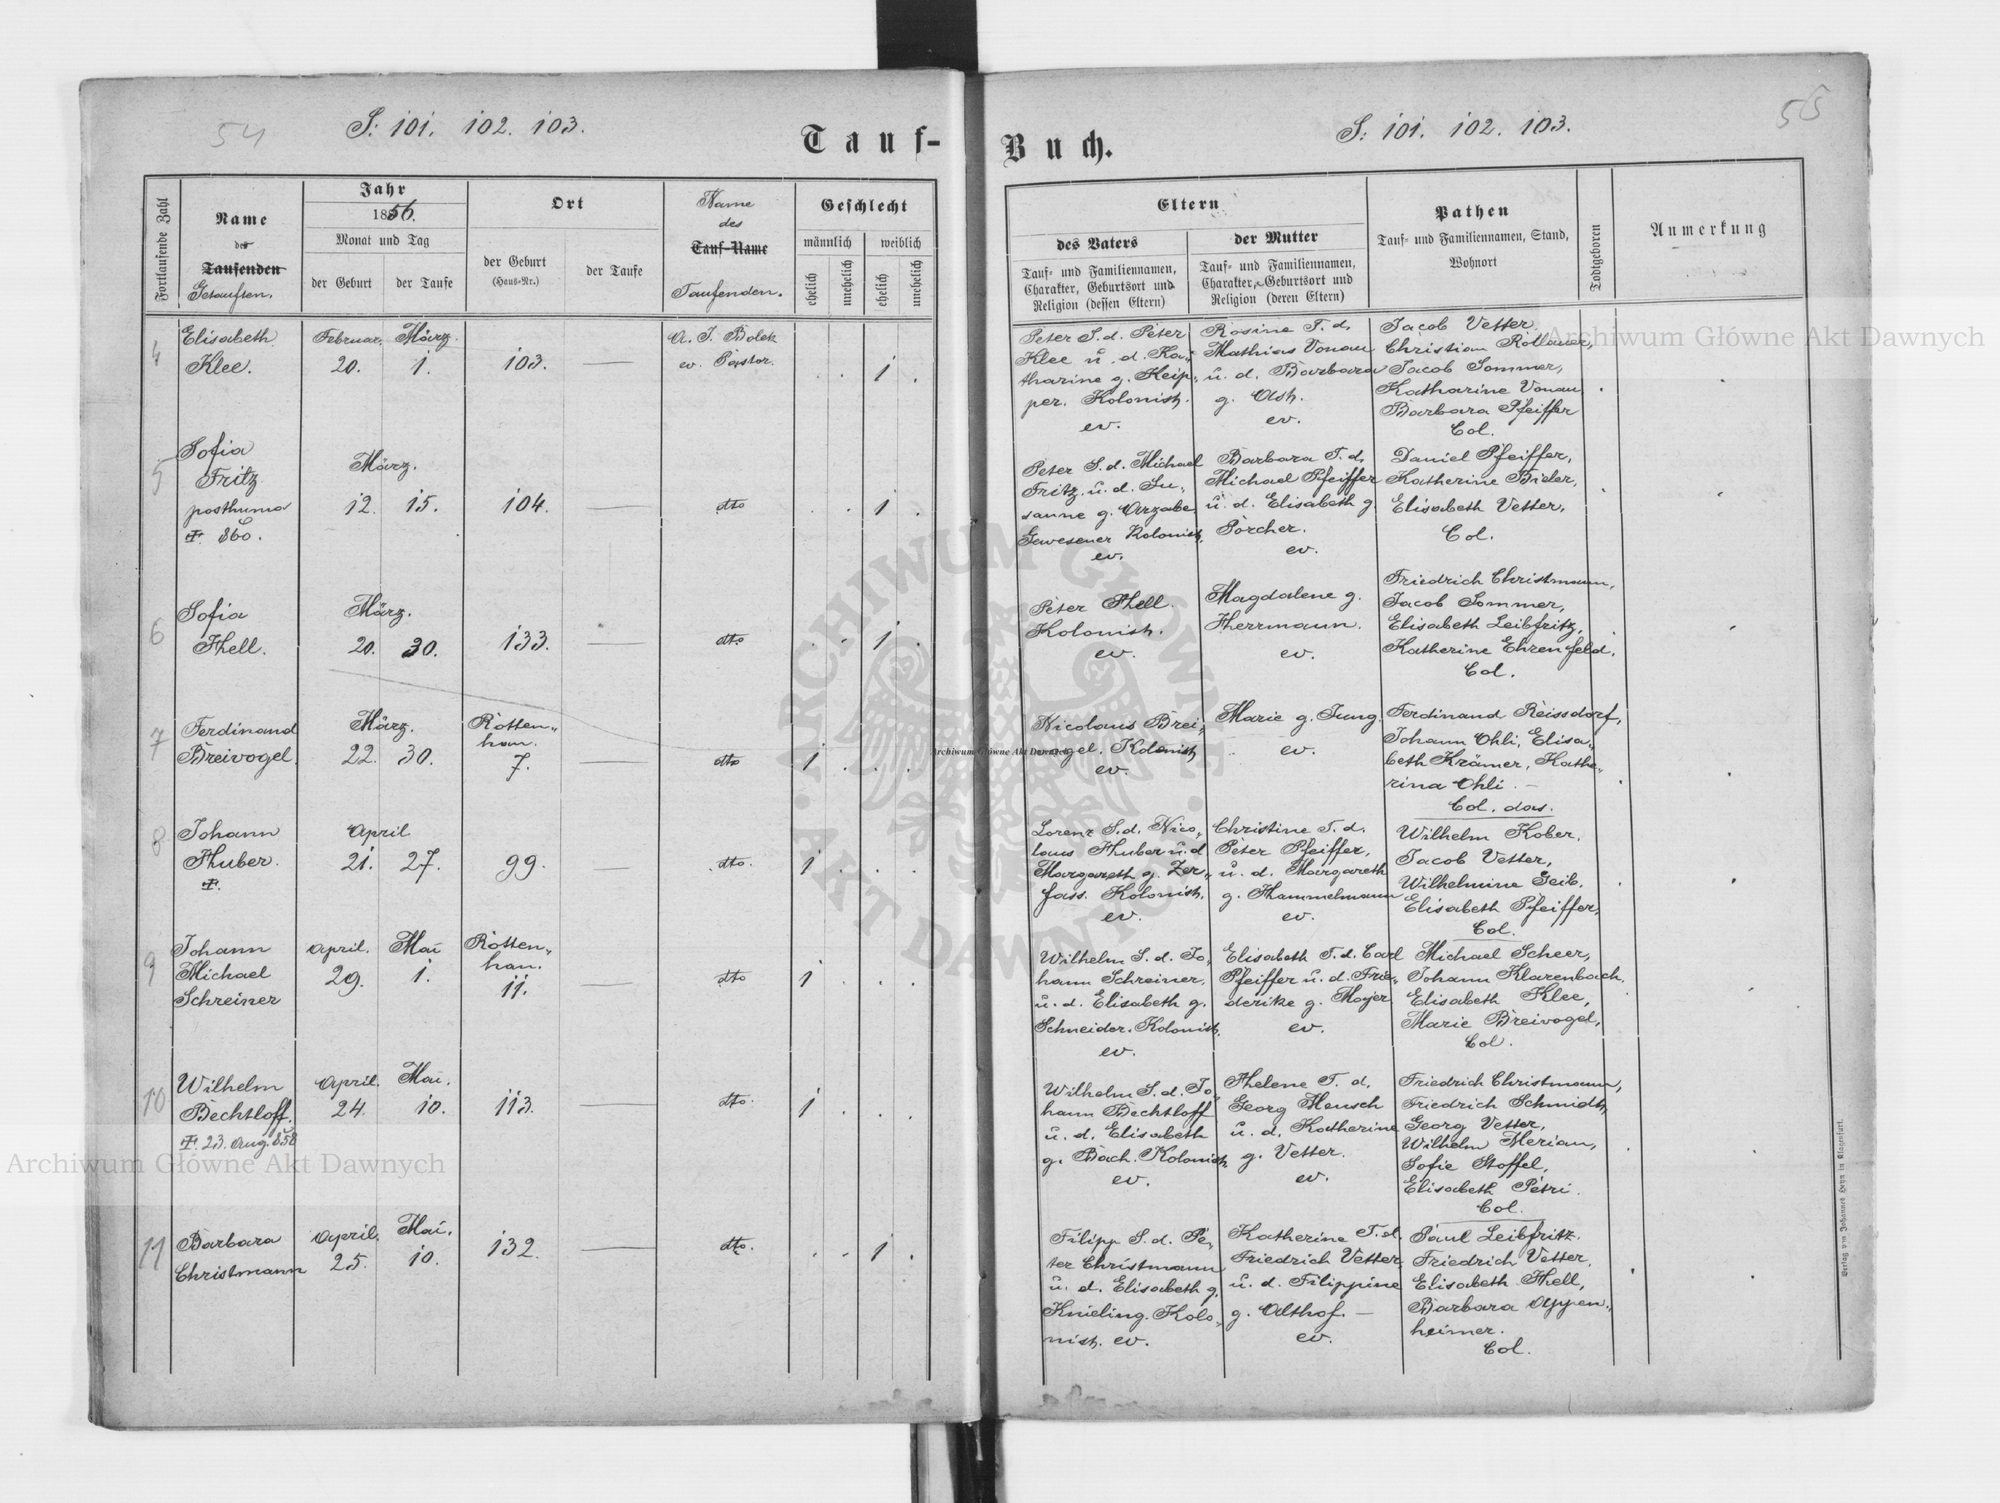 54
S: 101. 102. 103.
Tauf-
Fortlaufende Zahl
Name
des
Taufenden
Getauften.
Jahr
1856.
Monat und Tag
der Geburt
der Taufe
Ort
der Geburt
(Haus-Nr.)
der Taufe
Name
des
Tauf-Name
Taufenden.
Geschlecht
männlich
weiblich
ehelich
unehelich
ehelich
unehelich
4
Elisabeth
Klee.
Februar. März.
20. 1.
103.
A. J. Bolek
ev. Pastor.
. . 1 .
5
Sofia
Fritz
posthuma
860.
März.
12. 15.
104.
dto
. . 1 .
6
Sofia
Hell.
März.
20. 30.
133.
dto
. . 1 .
7
Ferdinand
Breivogel.
März.
22. 30.
Rotten-
han.
7.
dto
1 . . .
8
Johann
Huber.
April
21. 27.
99.
dto.
1 . . .
9
Johann
Michael
Schreiner
April. Mai
29. 1.
Rotten-
han.
11.
dto
1 . . .
10
Wilhelm
Bechtloff.
23. Aug. 858
April. Mai.
24. 10.
113.
dto.
1 . . .
11
Barbara
Christmann
April. Mai.
25. 10.
132.
dto.
. . 1 .
55
S: 101. 102. 103.
Buch.
Eltern
des Vaters
Tauf- und Familiennamen,
Charakter, Geburtsort und
Religion (dessen Eltern)
der Mutter
Tauf- und Familiennamen,
Charakter, Geburtsort und
Religion (deren Eltern)
Pathen
Tauf- und Familiennamen, Stand,
Wohnort
Todtgeboren
Anmerkung
Peter S. d. Peter
Klee u. d. Ka-
tharine g. Keip-
per. Kolonist.
ev.
Rosine T. d.
Mathias Vonau
u. d. Barbara
g. Ash.
ev.
Jacob Vetter.
Christian Rollauer,
Jacob Sommer,
Katharine Vonau
Barbara Pfeiffer
Col.
Peter S. d. Michael
Fritz u. d. Su-
sanne g. Arzabe
Gewesener Kolonist.
ev.
Barbara T. d.
Michael Pfeiffer
u. d. Elisabeth g.
Porcher.
ev.
Daniel Pfeiffer,
Katherine Bisler,
Elisabeth Vetter,
Col.
Peter Hell.
Kolonist.
ev.
Magdalene g.
Herrmann.
ev.
Friedrich Christmann,
Jacob Sommer,
Elisabeth Leibfritz,
Katherine Ehrenfeld.
Col.
Nicolaus Brei-
vogel. Kolonist
ev.
Marie g. Jung.
ev.
Ferdinand Reissdorf,
Johann Ohli, Elisa-
beth Krämer, Kathe-
rina Ohli. —
Col. das.
Lorenz S. d. Nico-
laus Huber u. d.
Margareth g. Zer-
fass. Kolonist.
ev.
Christine T. d.
Peter Pfeiffer,
u. d. Margareth
g. Hammelmann
ev.
Wilhelm Kober.
Jacob Vetter,
Wilhelmine Geib.
Elisabeth Pfeiffer,
Col.
Wilhelm S. d. Jo-
hann Schreiner,
u. d. Elisabeth g.
Schneider. Kolonist.
ev.
Elisabeth T. d. Carl
Pfeiffer u. d. Frie-
derike g. Mayer
ev.
Michael Scheer,
Johann Klarenbach,
Elisabeth Klee,
Marie Breivogel,
Col.
Wilhelm S. d. Jo-
hann Bechtloff
u. d. Elisabeth
g. Bach. Kolonist.
ev.
Helene T. d.
Georg Mensch
u. d. Katherine
g. Vetter.
ev.
Friedrich Christmann,
Friedrich Schmidt,
Georg Vetter,
Wilhelm Merian,
Sofie Stoffel,
Elisabeth Petri.
Col.
Filipp S. d. Pe-
ter Christmann
u. d. Elisabeth g.
Knieling. Kolo-
nist. ev.
Katherine T. d.
Friedrich Vetter
u. d. Filippine
g. Althof. —
ev.
Paul Leibfritz.
Friedrich Vetter.
Elisabeth Hell,
Barbara Oppen-
heimer.
Col.
Verlag von Johannes Heyn in Klagenfurt.
Archiwum Główne Akt Dawnych
Archiwum Główne Akt Dawnych
Archiwum Główne Akt Dawnych
ARCHIWUM GŁÓWNE · AKT DAWNYCH ·